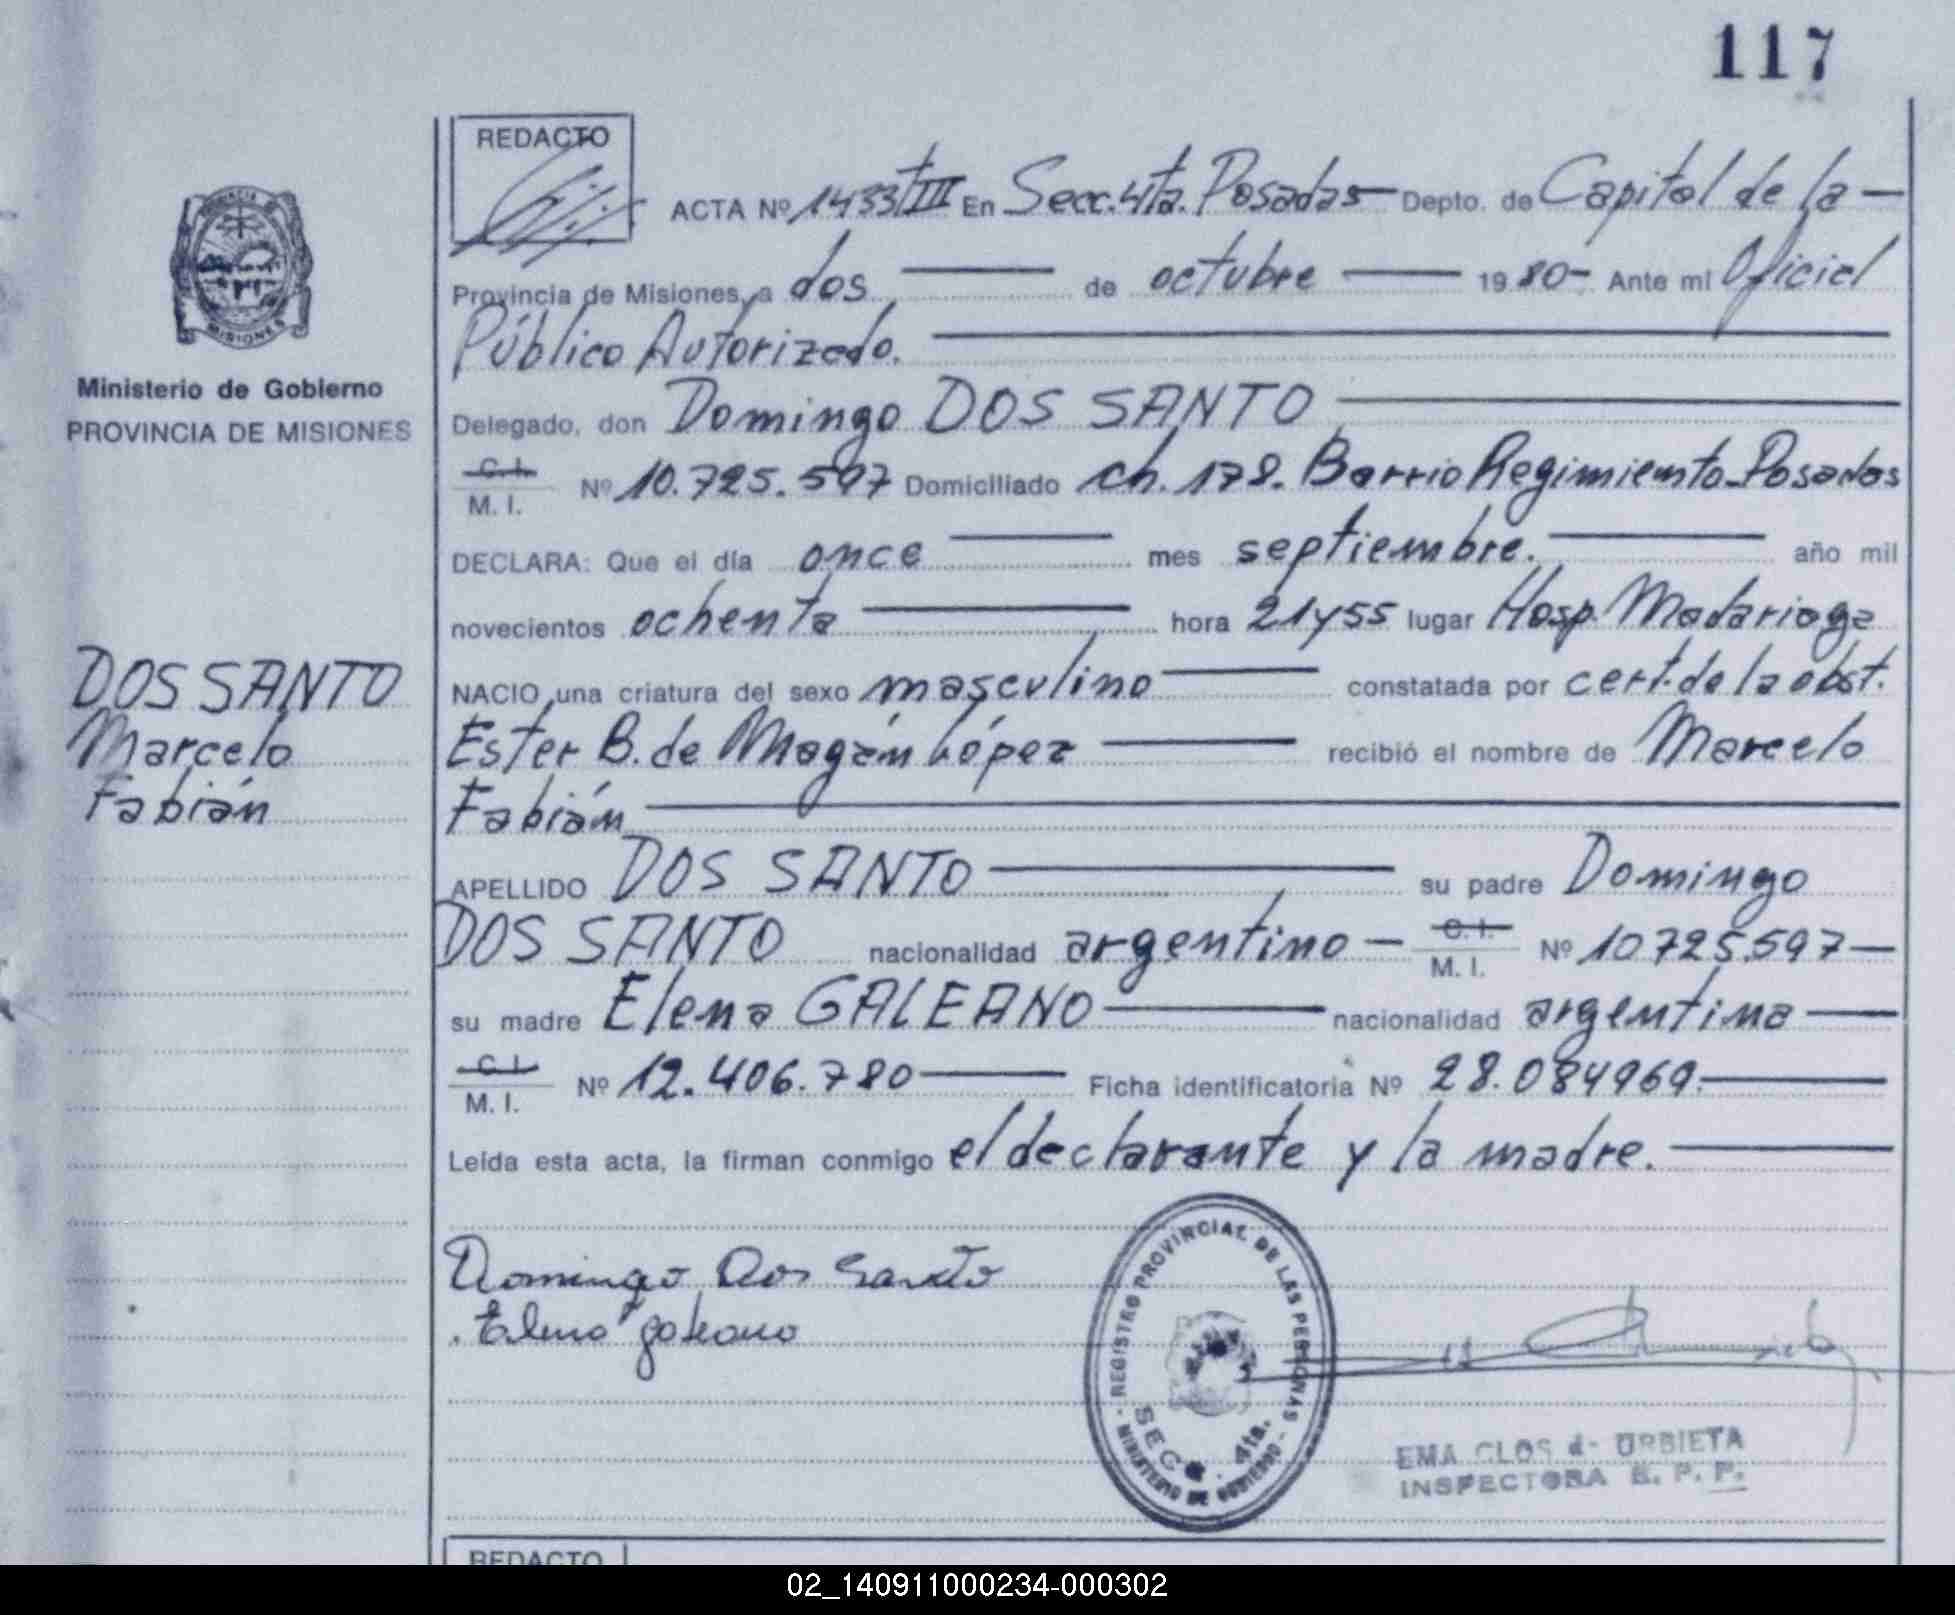 117
REDACTO
ACTA Nº 1433 t III En Secc. 4ta. Posadas Depto. de Capital de la
Provincia de Misiones, a dos de octubre 1980 Ante mi Oficial
Público Autorizado.
Ministerio de Gobierno
PROVINCIA DE MISIONES
Delegado, don Domingo DOS SANTO
C. I.
M. I.
Nº 10.725.597 Domiciliado ch. 178. Barrio Regimiento-Posadas
DECLARA: Que el día once mes septiembre. año mil
novecientos ochenta hora 21y55 lugar Hosp. Madariaga
DOS SANTO
Marcelo
Fabián
NACIO una criatura del sexo masculino constatada por cert. de la obst.
Ester B. de Magán López recibió el nombre de Marcelo
Fabián
APELLIDO DOS SANTO su padre Domingo
DOS SANTO nacionalidad argentino C. I.
M. I.
Nº 10.725.597
su madre Elena GALEANO nacionalidad argentina
C. I.
M. I.
Nº 12.406.780 Ficha identificatoria Nº 28.084969.
Leída esta acta, la firman conmigo el declarante y la madre.
Domingo Dos Santo
Elena galeano
REGISTRO PROVINCIAL DE LAS PERSONAS
MINISTERIO DE GOBIERNO
SECC. 4ta.
MISIONES
EMA CLOS de URBIETA
INSPECTORA R. P. P.
REDACTO
02_140911000234-000302